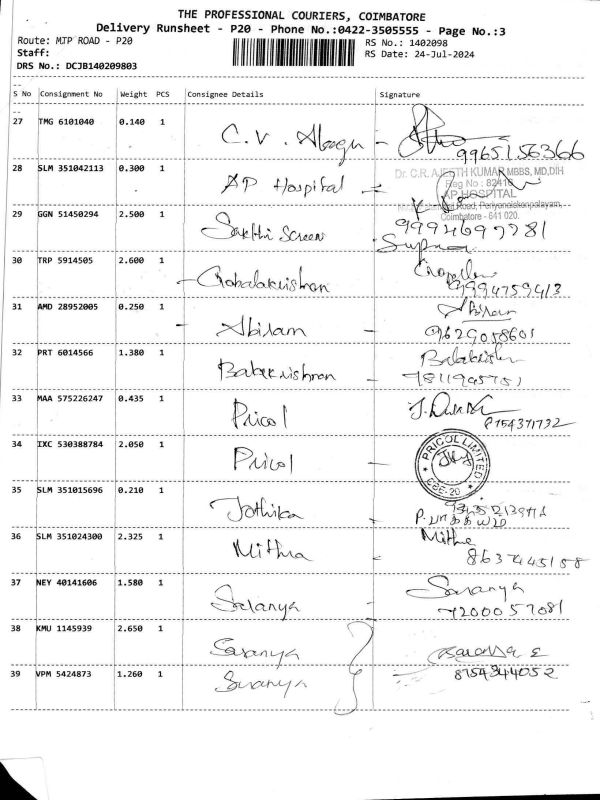 THE PROFESSIONAL COURIERS, COIMBATORE
Delivery Runsheet - P20 - Phone No.:0422-3505555 - Page No.:3
Route: MTP ROAD - P20 RS No.: 1402098
Staff: RS Date: 24-Jul-2024
DRS No.: DCJB140209803
S No Consignment No Weight PCS Consignee Details Signature
27 TMG 6101040 0.140 1 C.V.
9965156366
28 SLM 351042113 0.300 1 AP Hospital
Dr. C.R. AJEETH KUMAR MBBS, MD,DIH
Reg No : 82416
AP HOSPITAL
Road, Periyanaickenpalayam,
Coimbatore - 641 020.
29 GGN 51450294 2.500 1 Sakthi Screen
9994697781
30 TRP 5914505 2.600 1 Gobalakrishnan
9994759413
31 AMD 28952005 0.250 1 Abiram Abiram
9629058601
32 PRT 6014566 1.380 1 Balakrishnan Balakrishn
33 MAA 575226247 0.435 1 Pricol
8754371732
34 IXC 530388784 2.050 1 Pricol
PRICOL LIMITED
CBE-20
35 SLM 351015696 0.210 1 Jothika
36 SLM 351024300 2.325 1 Mithra Mithra
8637445158
37 NEY 40141606 1.580 1 Saranya Saranya
7200057081
38 KMU 1145939 2.650 1 Saranya
39 VPM 5424873 1.260 1 Saranya 8754344052